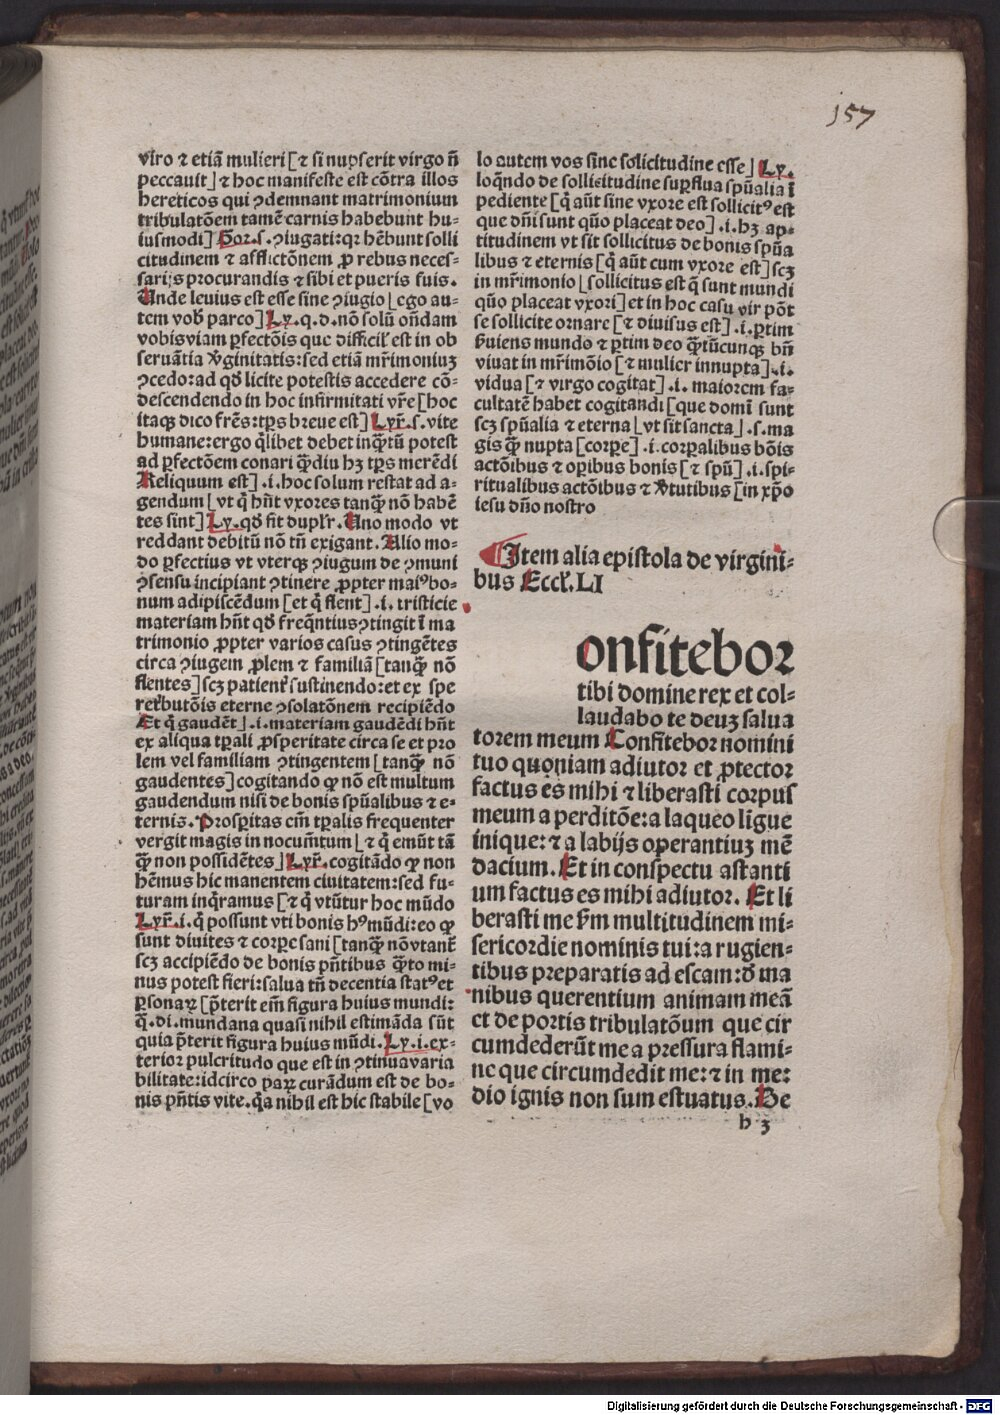 157
viro ⁊ etiā mulieri [⁊ si nupserit virgo ñ
peccauit] ⁊ hoc manifeste est cōtra illos
hereticos qui ꝯdemnant matrimonium
tribulatōem tamē carnis habebunt hu-
iusmodi] Gor. s. ꝯiugati: qꝛ hēbunt solli
citudinem ⁊ afflictōnem ꝓ rebus neces-
sarijs procurandis ⁊ sibi et pueris suis.
Unde leuius est esse sine ꝯiugio [ego au-
tem vob̄ parco] Ly. q. d. nō solū on̄dam
vobis viam ꝑfectōis que difficil' est in ob
seruātia v̓ginitatis: sed etiā mr̄imoniuꝫ
ꝯcedo: ad qd̓ licite potestis accedere cō-
descendendo in hoc infirmitati vr̄e [hoc
itaqꝫ dico frēs: tp̄s breue est] Lyr̄. s. vite
humane: ergo q̄libet debet inq̄tū potest
ad ꝑfectōem conari q̄diu hꝫ tp̄s merēdi
Reliquum est] .i. hoc solum restat ad a-
gendum [vt q̄ hn̄t vxores tanq̄ nō habē
tes sint] Ly. qd̓ fit duplr̄. Uno modo vt
reddant debitū nō tn̄ exigant. Alio mo-
do ꝑfectius vt vterqꝫ ꝯiugum de ꝯmuni
ꝯsensu incipiant ꝯtinere ꝓpter maiꝰ bo-
num adipiscēdum [et q̄ flent] .i. tristicie
materiam hn̄t qd̓ freq̄ntius ꝯtingit ī ma
trimonio ꝓpter varios casus ꝯtingētes
circa ꝯiugem ꝓlem ⁊ familiā [tanq̄ nō
flentes] scꝫ patient̓ sustinendo: et ex spe
retributōis eterne ꝯsolatōnem recipiēdo
Et q̄ gaudēt] .i. materiam gaudēdi hn̄t
ex aliqua tꝑali ꝓsperitate circa se et pro
lem vel familiam ꝯtingentem [tanq̄ nō
gaudentes] cogitando ꝙ nō est multum
gaudendum nisi de bonis spūalibus ⁊ e-
ternis. Prosꝑitas em̄ tꝑalis frequenter
vergit magis in nocum̄tum [⁊ q̄ emūt tā
q̄ non possidētes] Lyr̄. cogitādo ꝙ non
hēmus hic manentem ciuitatem: sed fu-
turam inq̄ramus [⁊ q̄ vtūtur hoc mūdo
Lyr̄. i. q̄ possunt vti bonis hꝰ mūdi: eo ꝙ
sunt diuites ⁊ corꝑe sani [tanq̄ nō vtant̓
scꝫ accipiēdo de bonis pn̄tibus q̄to mi-
nus potest fieri: salua tn̄ decentia statꝰ et
ꝑsonaꝝ [p̄terit em̄ figura huius mundi:
q̄. di. mundana quasi nihil estimāda sūt
quia p̄terit figura huius mūdi. Ly. i. ex-
terior pulcritudo que est in ꝯtinua varia
bilitate: idcirco paꝝ curādum est de bo-
nis pn̄tis vite. q̄a nihil est hic stabile [vo
lo autem vos sine solicitudine esse] Ly.
loq̄ndo de sollicitudine suꝑflua spūalia ī
pediente [q̄ aūt sine vxore est sollicitꝰ est
que dn̄i sunt quō placeat deo] .i. hꝫ ap-
titudinem vt sit sollicitus de bonis spūa
libus ⁊ eternis [q̄ aūt cum vxore est] scꝫ
in mr̄imonio [sollicitus est q̄ sunt mundi
quō placeat vxori] et in hoc casu vir pōt
se sollicite ornare [⁊ diuisus est] .i. ꝑtim
ẜuiens mundo ⁊ ꝑtim deo q̄tūcunqꝫ bn̄
viuat in mr̄imōio [⁊ mulier innupta] .i.
vidua [⁊ virgo cogitat] .i. maiorem fa-
cultatē habet cogitandi [que domī sunt
scꝫ spūalia ⁊ eterna [vt sit sancta] .s. ma
gis q̄ nupta [corꝑe] .i. corꝑalibus bōis
actōibus ⁊ oꝑibus bonis [⁊ spū] .i. spi-
ritualibus actōibus ⁊ v̓tutibus [in xp̄o
iesu dn̄o nostro
Item alia epistola de virgini-
bus Eccl. LI
onfitebor
tibi domine rex et col-
laudabo te deuꝫ salua
torem meum Confitebor nomini
tuo quoniam adiutor et ꝓtector
factus es mihi ⁊ liberasti corpus
meum a perditōe: a laqueo ligue
inique: ⁊ a labijs oꝑantiuꝫ mē
dacium. Et in conspectu astanti
um factus es mihi adiutor. Et li
berasti me ẜm multitudinem mi-
sericordie nominis tui: a rugien-
tibus p̄eparatis ad escam: d̓ ma
nibus querentium animam meā
et de portis tribulatōum que cir
cumdederūt me a pressura flami-
ne que circumdedit me: ⁊ in me-
dio ignis non sum estuatus. De
h 3
Digitalisierung gefördert durch die Deutsche Forschungsgemeinschaft - DFG